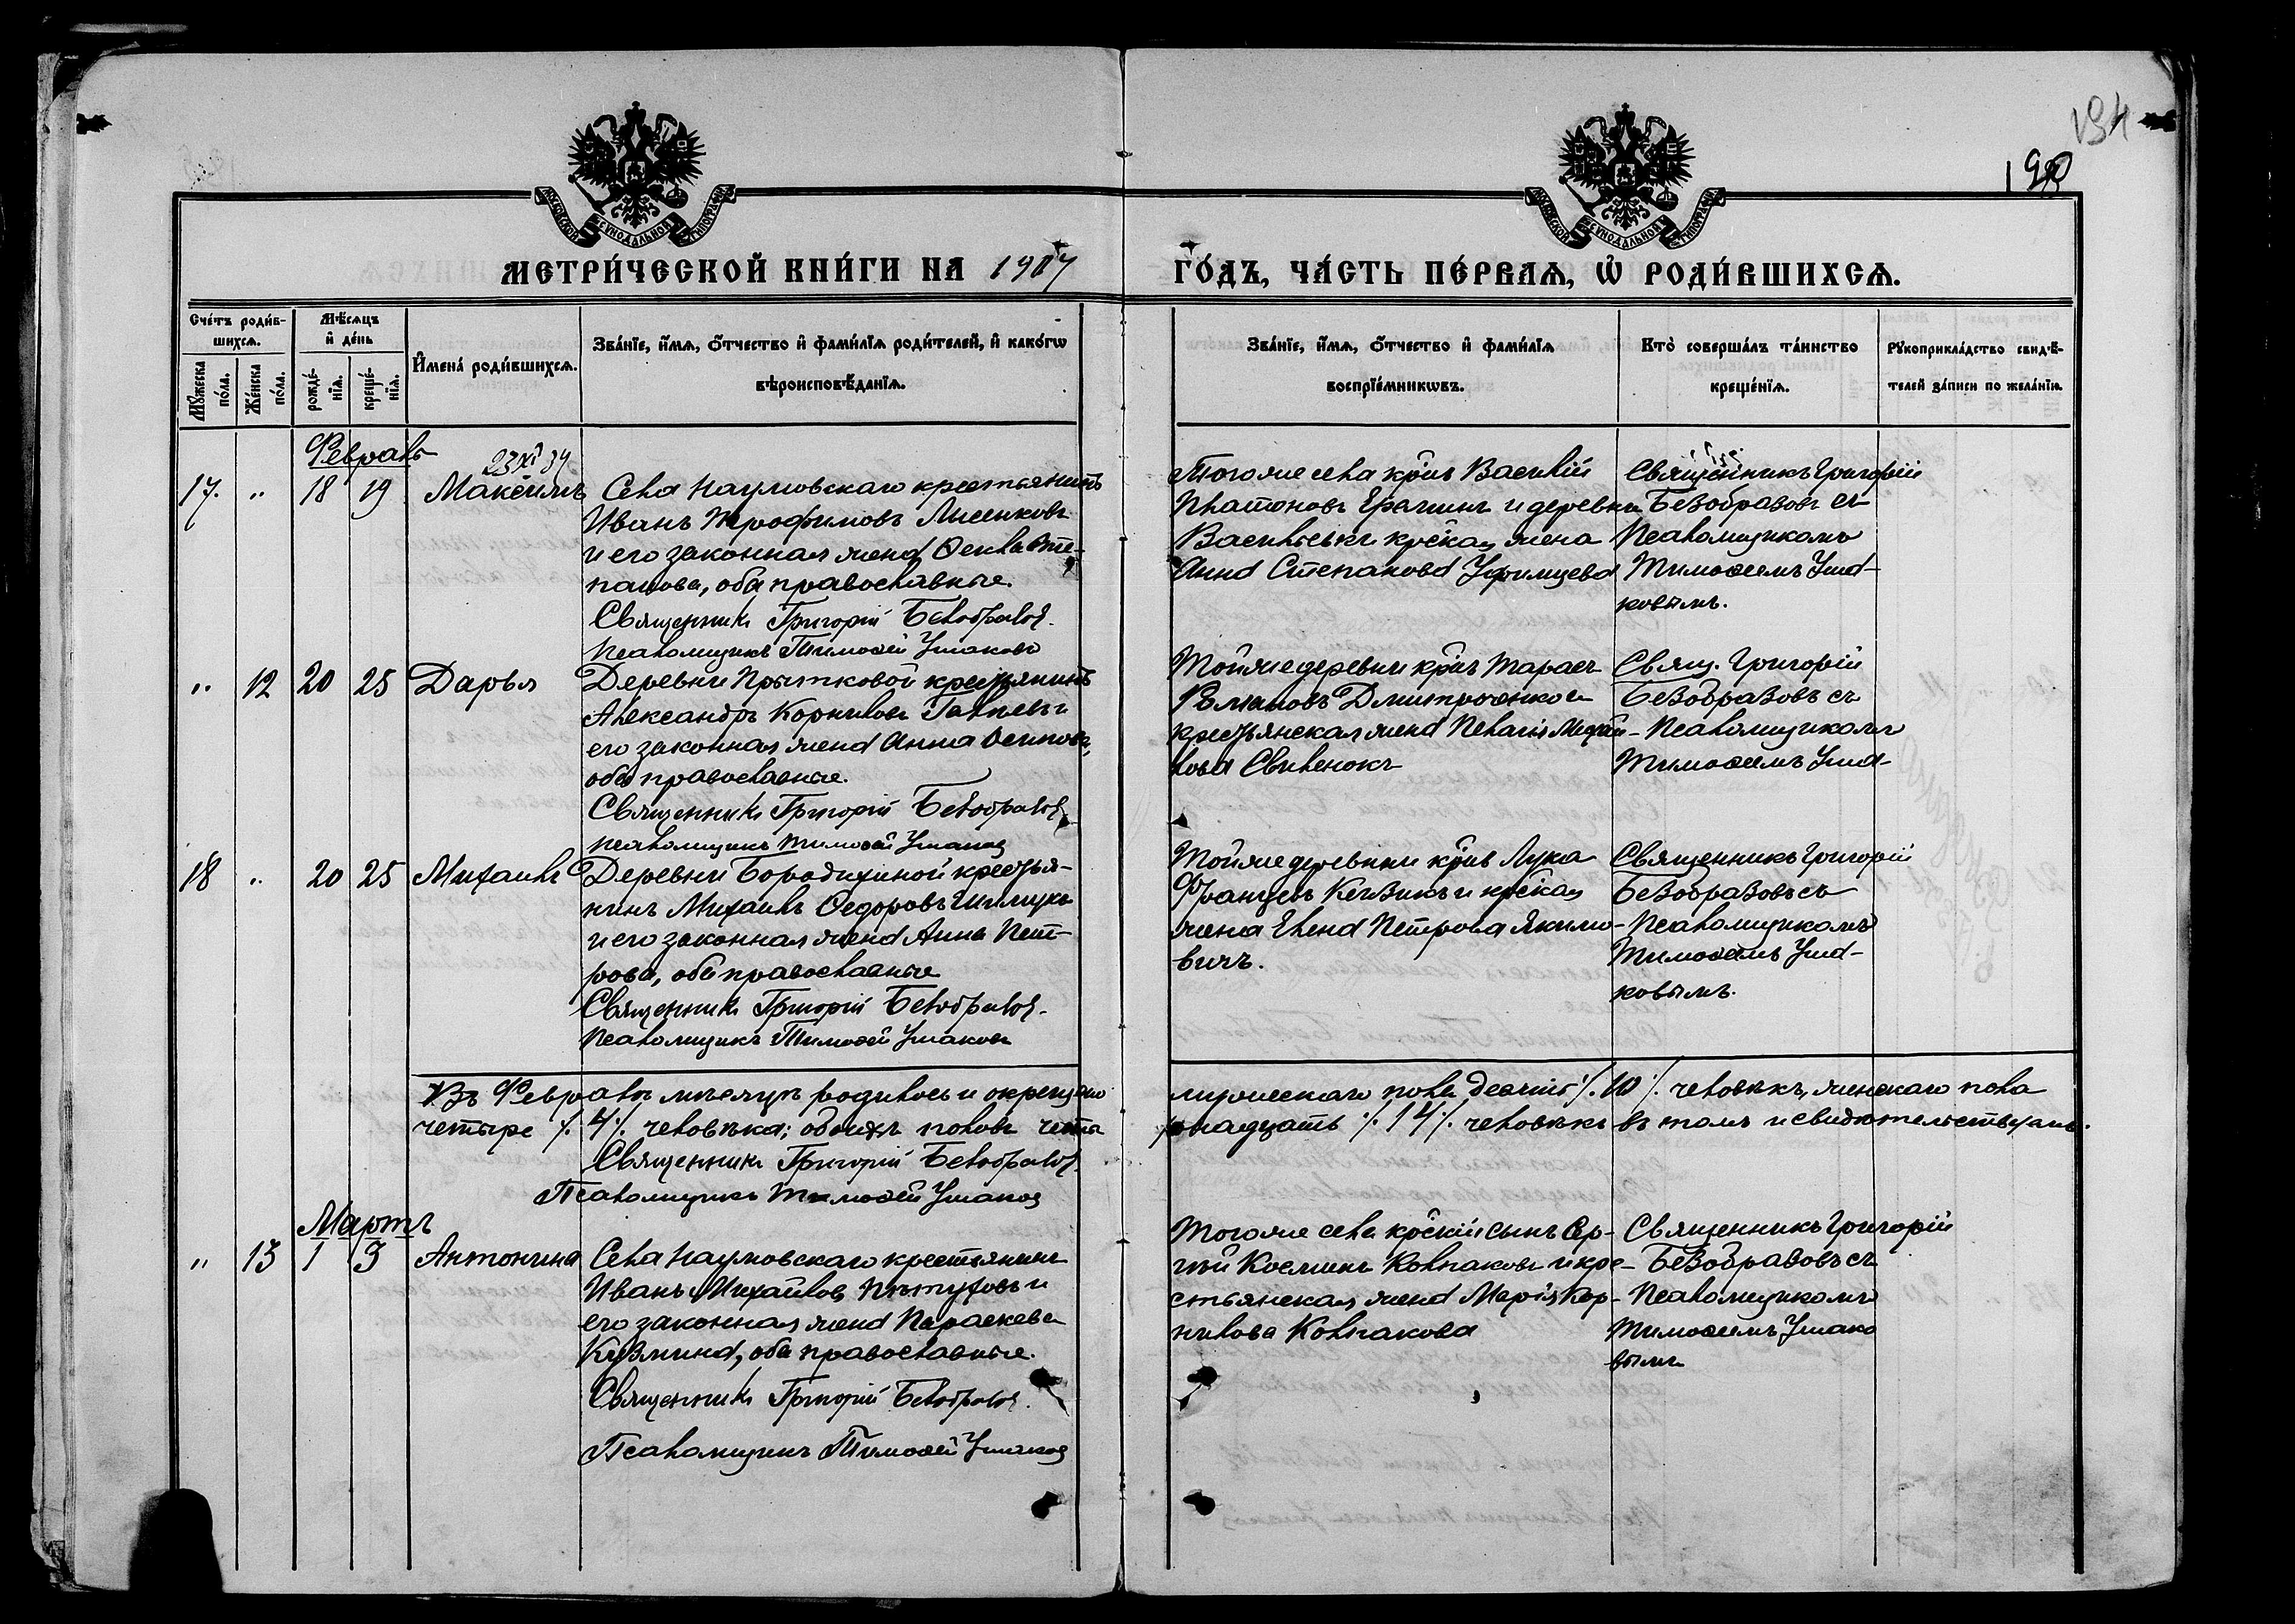 194
190
МОСКОВСКОЙ СѴНОДАЛЬНОЙ ТИПОГРАФІИ
МОСКОВСКОЙ СѴНОДАЛЬНОЙ ТИПОГРАФІИ
МЕТРИ́ЧЕСКОЙ КНИ́ГИ НА 1917
ГО́ДЪ, ЧА́СТЬ ПЕ́РВАѦ, Ѡ҆ РОДИ́ВШИХСѦ.
Сче́тъ роди́в-
шихсѧ.
Мꙋжеска по́ла.
Же́нска по́ла.
Мѣ́сѧцъ
и҆ де́нь
рожде́-
нїѧ.
креще́-
нїѧ.
И҆мена̀ роди́вшихсѧ.
Зва́нїе, и҆́мѧ, ѻ҆́тчество и҆ фами́лїѧ роди́телей, и҆ како́гѡ
вѣроисповѣ́данїѧ.
Зва́нїе, и҆́мѧ, ѻ҆́тчество и҆ фами́лїѧ
воспрїе́мникѡвъ.
Кто̀ соверша́лъ та́инство
креще́нїѧ.
Рꙋкоприкла́дство свидѣ́-
телей за́писи по жела́нїю.
Февраль
23 XI 34
17. " 18 19 Максимъ
Села Наумовскаго крестьянинъ
Иванъ Трофимовъ Лисенковъ
и его законная жена Ѳекла Сте-
панова, оба православные.
Священникъ Григорій Безобразовъ.
Псаломщикъ Тимоѳей Ушаковъ
Тогоже села кр-нъ Василій
Платоновъ Ерашинъ и деревни
Васильевки кр-ская жена
Анна Степанова Уфимцева
Священникъ Григорій
Безобразовъ съ
Псаломщикомъ
Тимоѳеемъ Уша-
ковымъ.
" 12 20 25 Дарья
Деревни Прытковой крестьянинъ
Александръ Корниловъ и
его законная жена Анна Осипова,
оба православные.
Священникъ Григорій Безобразовъ
псаломщикъ Тимоѳей Ушаковъ
Тойже деревни кр-нъ Тарасъ
Романовъ Дмитроченко и
крестьянская жена Пелагія Михай-
лова Свиленокъ
Свящ. Григорій
Безобразовъ съ
Псаломщикомъ
Тимоѳеемъ Уша-
18 " 20 25 Михаилъ
Деревни Бородихиной крестья-
нинъ Михаилъ Ѳедоровъ
и его законная жена Анна Пет-
рова, оба православные
Священникъ Григорій Безобразовъ.
Псаломщикъ Тимоѳей Ушаковъ
Тойже деревни кр-нъ Лука
Францевъ и кр-ская
жена Елена Петрова Якимо-
вичъ.
Священникъ Григорій
Безобразовъ съ
Псаломщикомъ
Тимоѳеемъ Уша-
ковымъ.
Въ Февралѣ мѣсяцѣ родилось и окрещено мужескаго пола десять /. 10 /. человѣкъ, женскаго пола
четыре /. 4 /. человѣка; обоихъ половъ четы рнадцать /. 14 /. человѣкъ въ томъ и свидѣтельствуемъ.
Священникъ Григорій Безобразовъ
Псаломщикъ Тимоѳей Ушаковъ
Мартъ
" 13 1 3 Антонина
Села Наумовскаго крестьянинъ
Иванъ Михайловъ Пѣтуховъ и
его законная жена Параскева
Кузмина, оба православные.
Священникъ Григорій Безобразовъ.
Псаломщикъ Тимоѳей Ушаковъ
Тогоже села кр-скій сынъ Сер-
гѣй Косминъ Колпаковъ и кре-
стьянская жена Марія Кор-
нилова Колпакова
Священникъ Григорій
Безобразовъ съ
Псаломщикомъ
Тимоѳеемъ Ушако
вымъ